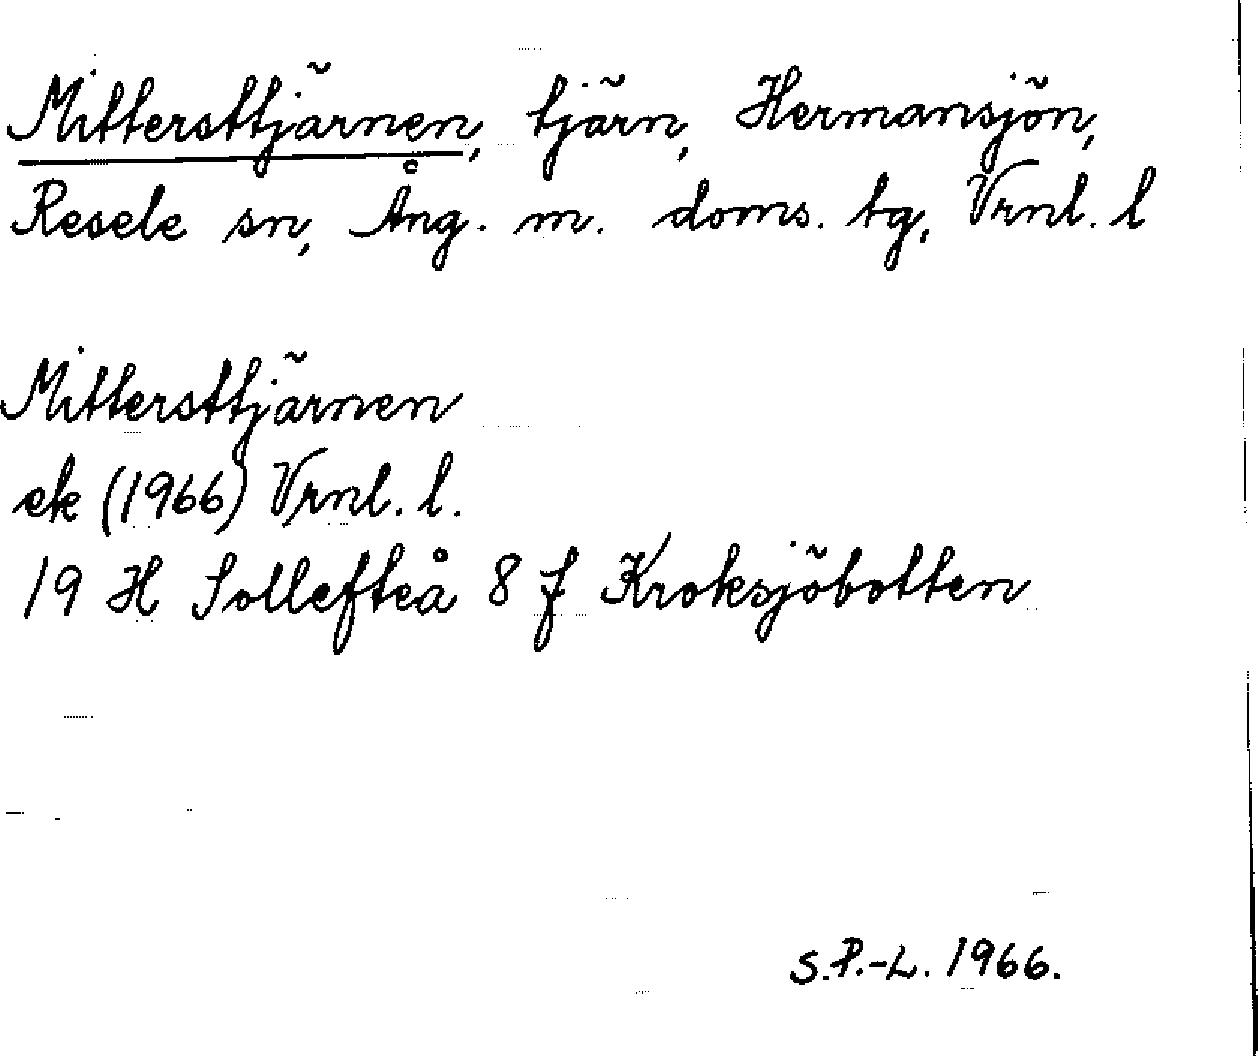 Mittersttjärnen, tjärn, Hermansjön,
Resele sn, Ång. m. doms. tg, Vrnl. l
Mittersttjärnen
ek (1966) Vrnl. l.
19 H Sollefteå 8 f Kroksjöbotten
S.P.-L. 1966.